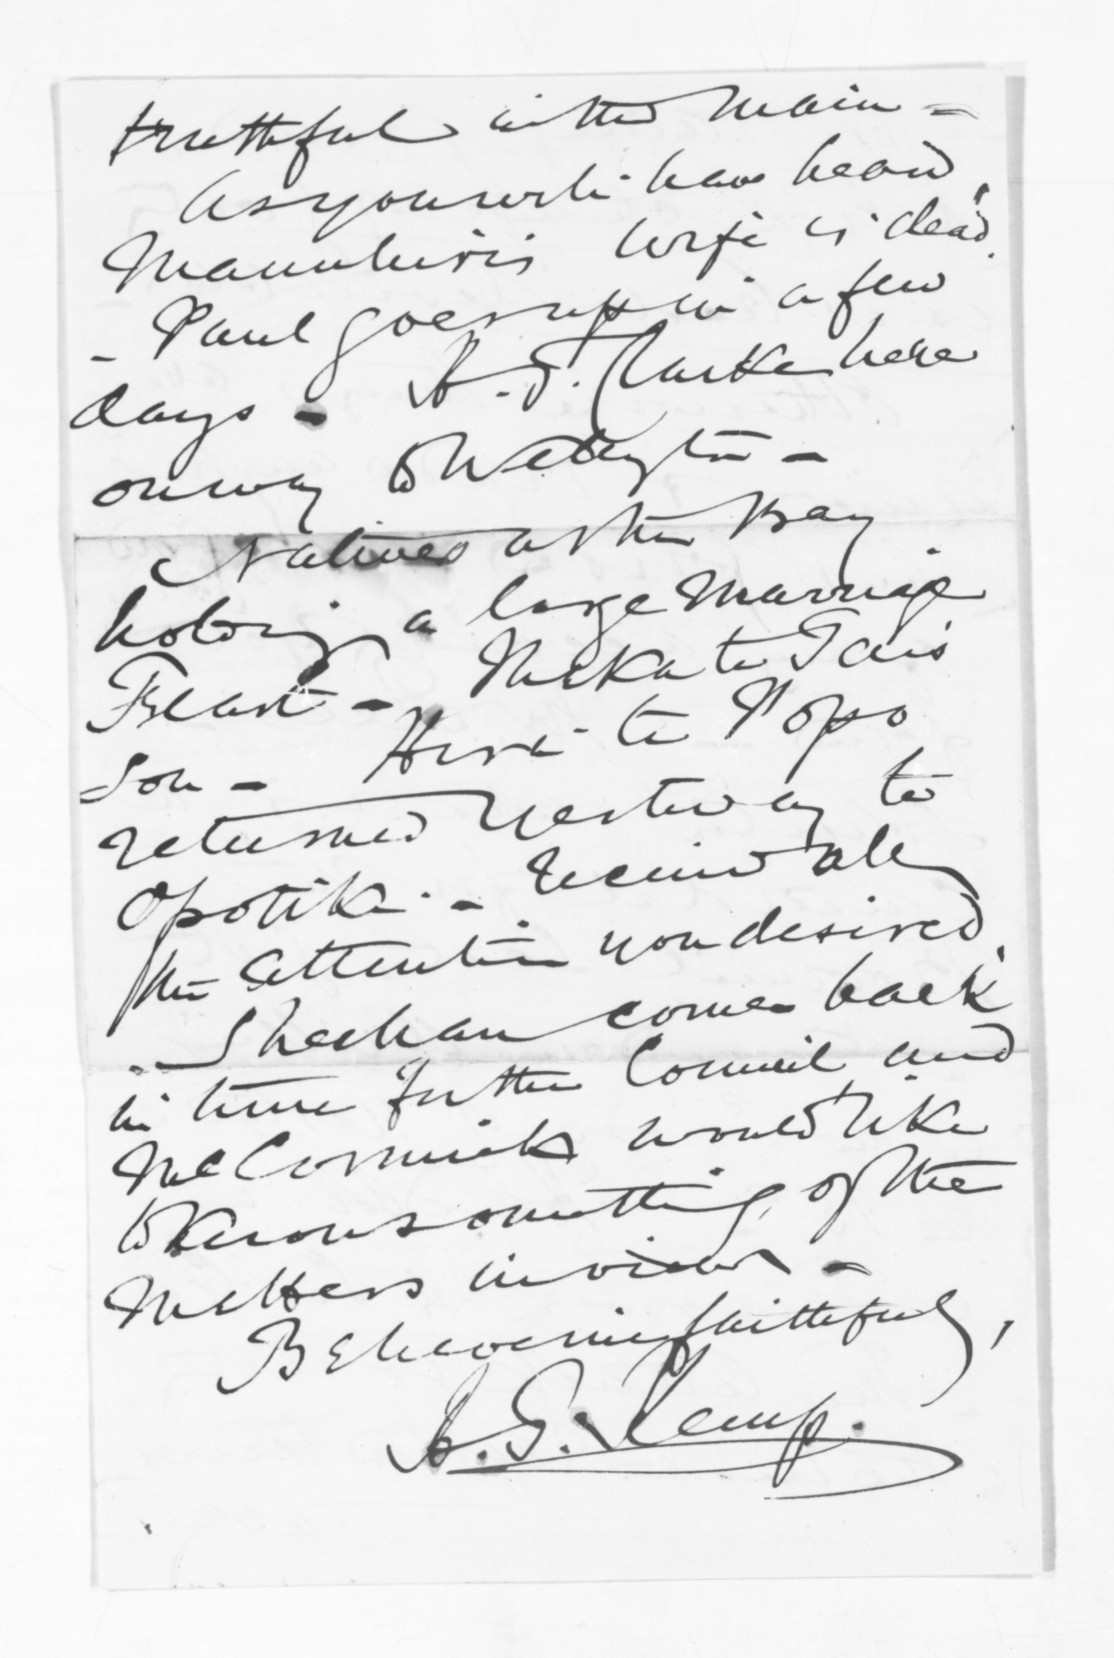 truthful in the main -
As you will have heard,
Manuhiri's wife is dead.
- Paul goes up in a few
days - H. T. Clarke here
on way to Wellington -
Natives at the Bay
holding a large Marriage
Feast - te Tai's
Son - Hira te Popo
returned yesterday to
Opotiki. - Received all
the attention you desired.
Sheehan comes back
in time for the Council and
McCormick would like
to know something of the
Matters in view -
Believe me faithfully,
H. G. Kemp.